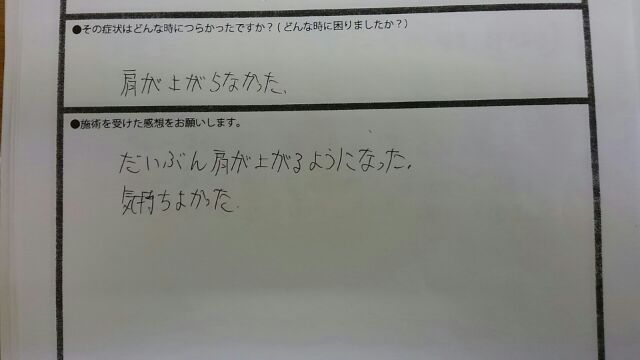 ●その症状はどんな時につらかったですか?(どんな時に困りましたか?)
肩が上がらなかった。
●施術を受けた感想をお願いします。
だいぶん肩が上がるようになった。
気持ちよかった。